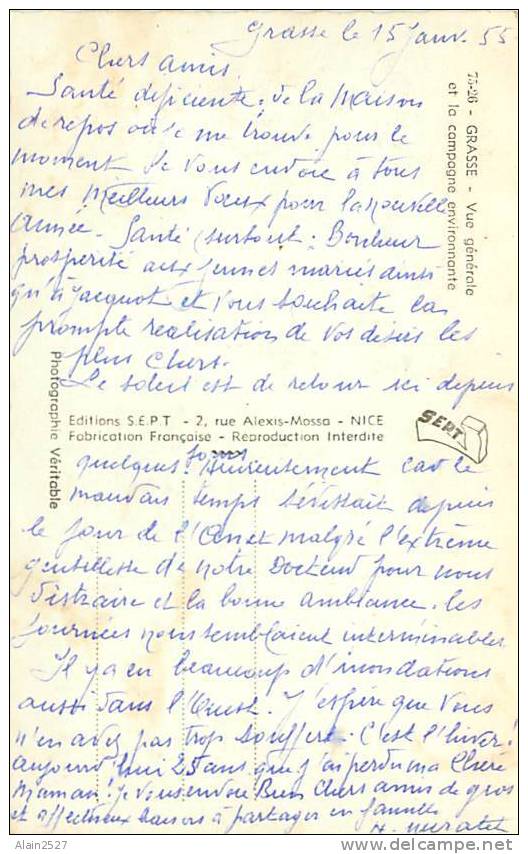 Grasse le 15 Janv. 55
Chers amis,
Santé déficiente. de la Maison
de repos où je me trouve pour le
moment Je vous envoie à tous
mes Meilleurs Vœux pour la Nouvelle
Année. Santé surtout. Bonheur
prospérité aux jeunes mariés ainsi
qu'à Jacquot et vous souhaite la
prompte réalisation de vos désirs les
plus chers.
Le soleil est de retour ici depuis
quelques jours Heureusement car le
mauvais temps sévissait depuis
le jour de l'An et malgré l'extrême
gentillesse de notre Docteur pour nous
distraire et la bonne ambiance. les
journées nous semblaient interminables
Il y a eu beaucoup d'inondations
aussi dans l'Ouest. J'espère que vous
n'en avez pas trop souffert. C'est l'hiver!
aujourd'hui 25 ans que j'ai perdu ma Chère
Maman! Je vous envoie Bien Chers amis de gros
et affectueux baisers à partager en famille
75-26 - GRASSE - Vue générale
et la campagne environnante
Photographie Véritable
Editions S.E.P.T - 2, rue Alexis-Mossa - NICE
Fabrication Française - Reproduction Interdite
SEPT
Alain2527
delcampe.net